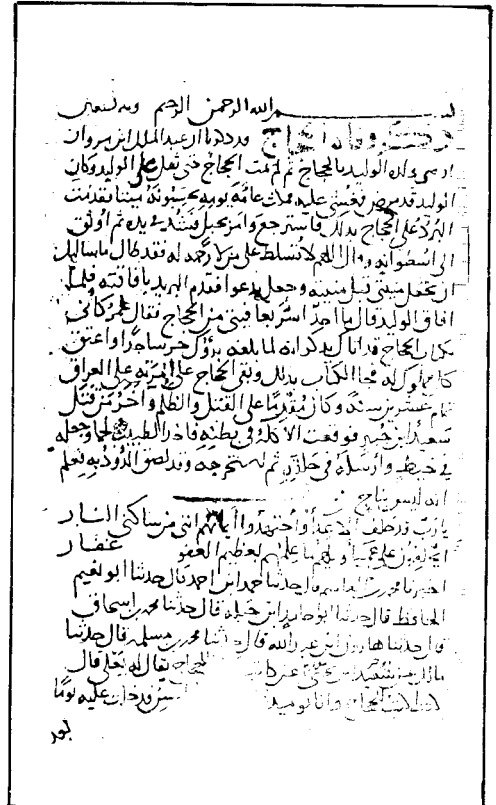 بسم الله الرحمن الرحيم وبه نستعين
وفاة الحجاج قد ذكرنا ان عبد الملك ابن مروان
اوصى ولده الوليد بالحجاج ثم لم يمت الحجاج حتى ثقل على الوليد وكان
الوليد قد مرض فغشي عليه فمكث عامة يومه يحسبونه ميتا فقدمت
البرد على الحجاج بذلك فاسترجع وامر بحبل فشد في يده ثم اوثق
الى اسطوانة وقال اللهم لا تسلط علي من لا رحمة له فقد طال ما سالتك
ان تجعل منيتي قبل منيته وجعل يدعوا فقدم البريد بافاقته فلما
افاق الوليد قال ما احد اشر بعافيتي من الحجاج فقال عمر كاني
بكتاب الحجاج قد اتاك يذكر انه لما بلغه برؤك خر ساجدا واعتق
كل مملوك له فجا الكتاب بذلك وبقي الحجاج على امرته على العراق
تمام عشرين سنة وكان مقدما على القتل والظلم وآخر من قتل
سعيد ابن جبير فوقعت الاكلة في بطنه فاخذ الطبيب لحما وجعله
في خيط وارسله في حلقه ثم استخرجه وقد لصق الدود به فعلم
انه ليس بناج
يا رب قد حلف الاعدا واجتهدوا ايمانهم انني من ساكني النار
ايحلفون على عميا ويلهم ما علمهم بعظيم العفو غفار
اخبرنا محمد قال حدثنا حمد ابن احمد قال حدثنا ابو نعيم
الحافظ قال حدثنا ابو حامد ابن جبلة قال حدثنا محمد بن اسحاق
قال حدثنا هارون ابن عبد الله قال حدثنا محمد بن مسلمة قال حدثنا
مالك بن سعيد للحجاج يقال له يعلى قال
الحجاج وانا يوميذ قد دخلت عليه يوما